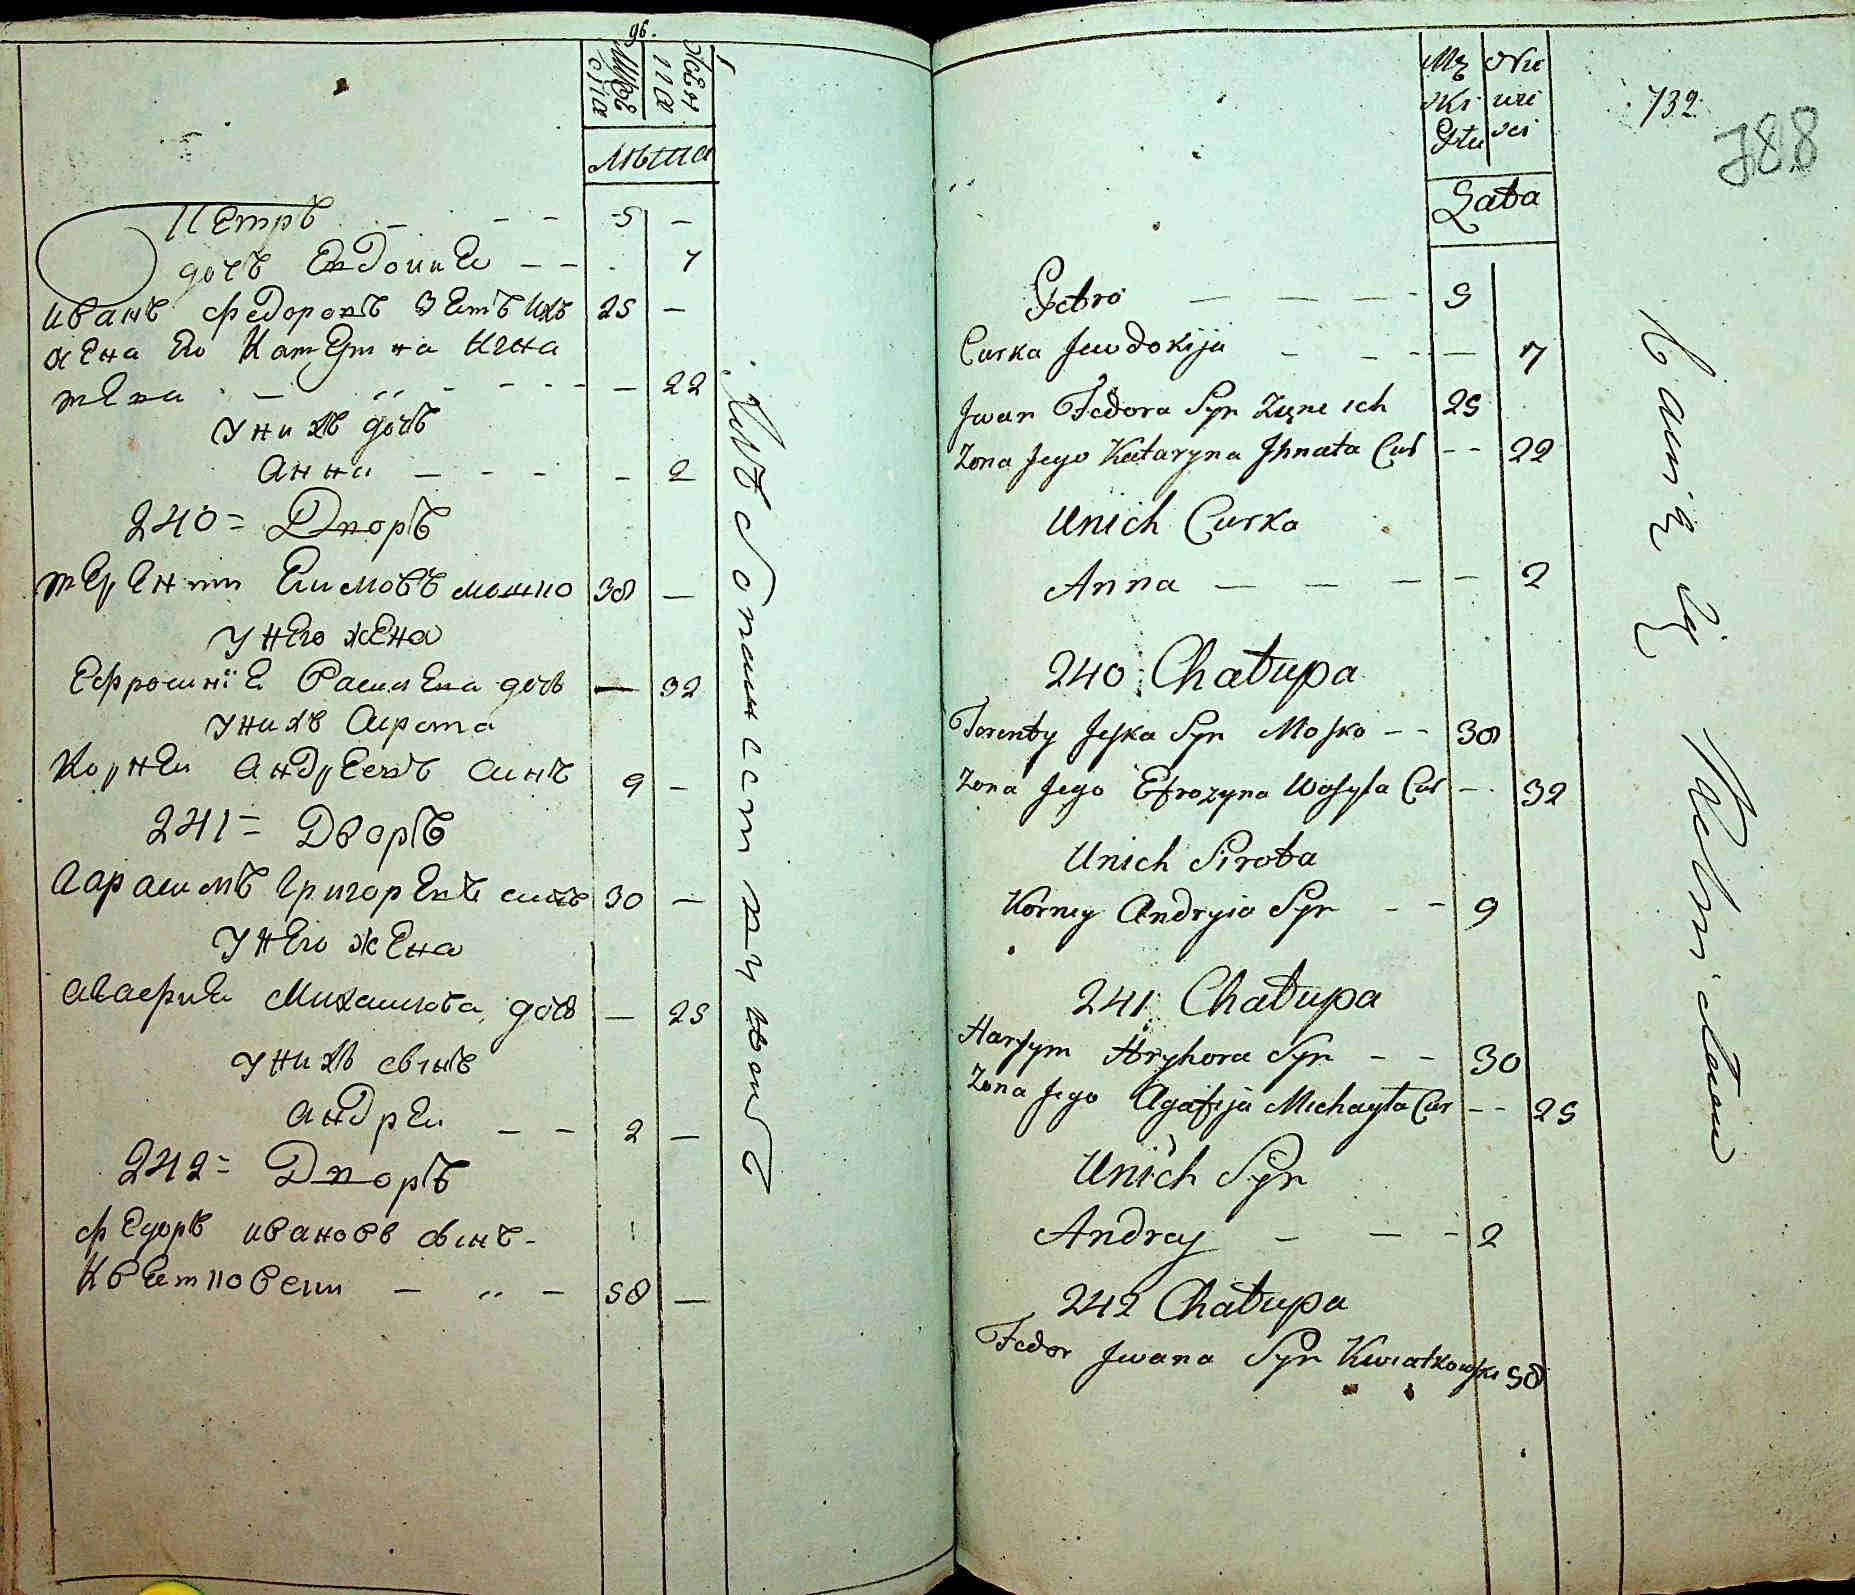 96.
Мужеска
Женска
Лѣта
Петръ — — — 5 —
дочь Евдокия — — . 7
иванъ федоровъ зеть ихъ 25 —
жена Его Катерина Игна
тева — „ - - - - — 22
У них дочь
Анна — - - - 2
240 = Дворъ
терентий Есиповъ мошко 38 —
У него жена
Ефросинiе Васильева дочь — 32
У нихъ Сирота
Корней Андреевъ синъ 9 —
241 = Дворъ
Гарасимъ григоревъ синъ 30 —
У него жена
Агафия Михайлова дочь — 25
У нихъ сынъ
Андрей — — 2 —
242 = Дворъ
федоръ ивановъ сынъ -
Квятковски — „ — 58 —
Męzki Płci
Niewieści
Lata
732
788
Petro — — — - 5
Curka Jewdokija — - - — 7
Jwan Fedora Syn Zięnc ich 25
Zona Jego Kataryna Jhnata Cur - - 22
Unich Curka
Anna — — — — — 2
240 Chałupa
Terenty Jeska Syn Mosko - - 38
Zona Jego Efrozyna Wasyla Cur — 32
Unich Sirota
Korney Andryia Syn - - 9
241 Chałupa
Harsym Hryhora Syn - - 30
Zona Jego Agafija Michayła Cur - - 25
Unich Syn
Andrey - - - 2
242 Chałupa
Fedor Jwana Syn Kwiatkowski 58